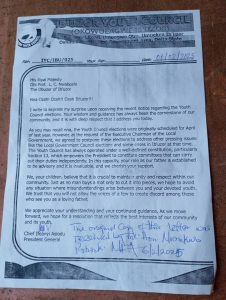 YOUTH COUNCIL
Date: 01/02/2025
His Royal Majesty
Obi Prof. L. C. Nwaoboshi
The Obuzor of
I write to express my surprise upon receiving the recent notice regarding the Youth
Council elections. Your wisdom and guidance has always been the cornerstone of our
community, and it is with deep respect that I address you today.
As you may recall, the Youth Council elections were originally scheduled for April
of last year. However, at the request of the Executive Chairman of the Local
Government, we agreed to postpone these elections to address other pressing issues
like the Local Government Council elections and some crises in at that time.
The Youth Council has always operated under a well-defined constitution, particularly
Section 13, which empowers the President to constitute committees that can carry
out their duties independently. In this capacity, your role as our father is established
to be advisory and it is invaluable, and we cherish your support.
We, your children, believe that it is crucial to maintain unity and respect within our
community. Just as no man buys a mat only to cut it into pieces, we hope to avoid
any situation where misunderstandings arise between you and your devoted youth.
We trust that you will not allow the voices of a few to create discord among those
who see you as a loving father.
We appreciate your understanding and your continued guidance. As we move
forward, we hope for a resolution that reflects the best interests of our community
and its youth.
The original copy of this letter was
received by me Hon.
Patrick 6/2/2025
Chief
President General